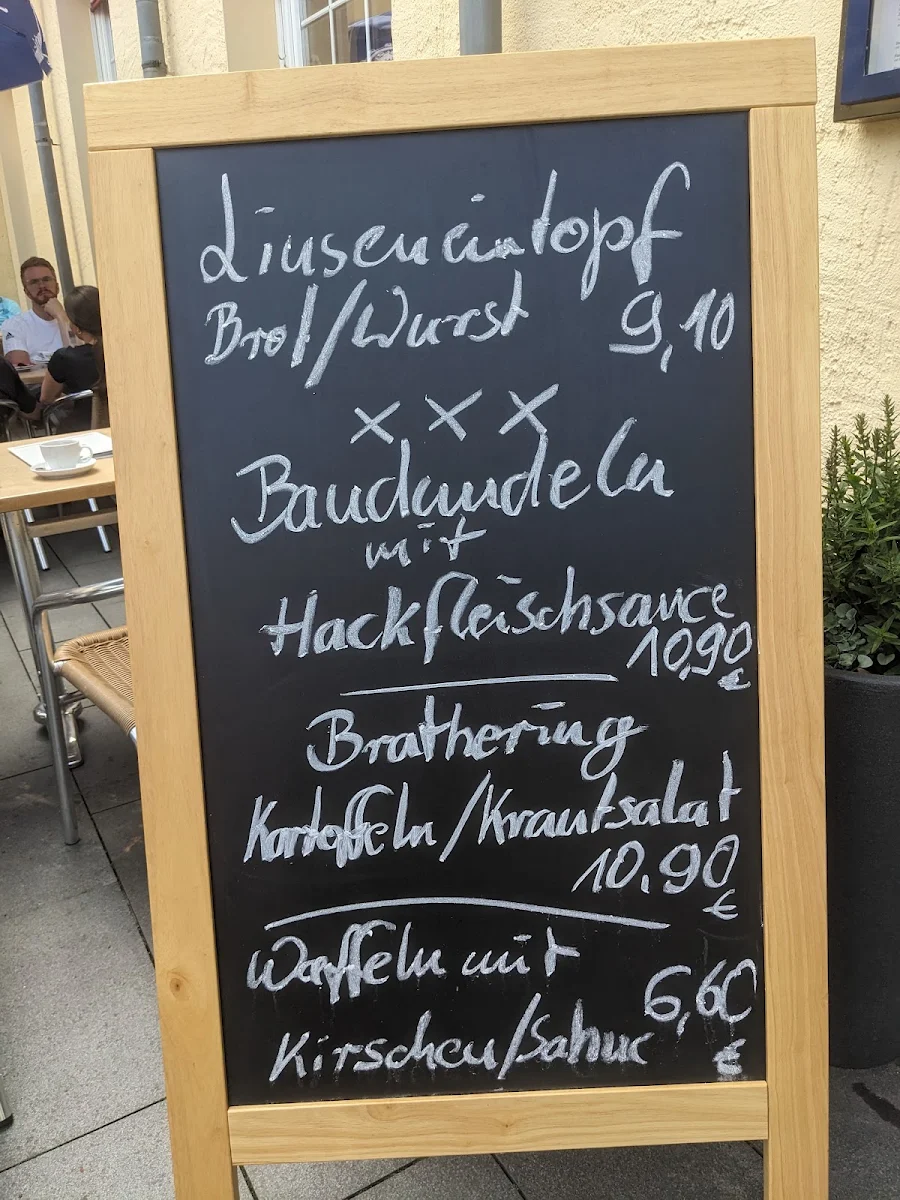 Linseneintopf
Brot/Wurst 9,10
x x x
Bandnudeln
mit
Hackfleischsauce
10,90
€
Brathering
Kartoffeln/Krautsalat
10.90
€
Waffeln mit
6,60
Kirschen/Sahne €